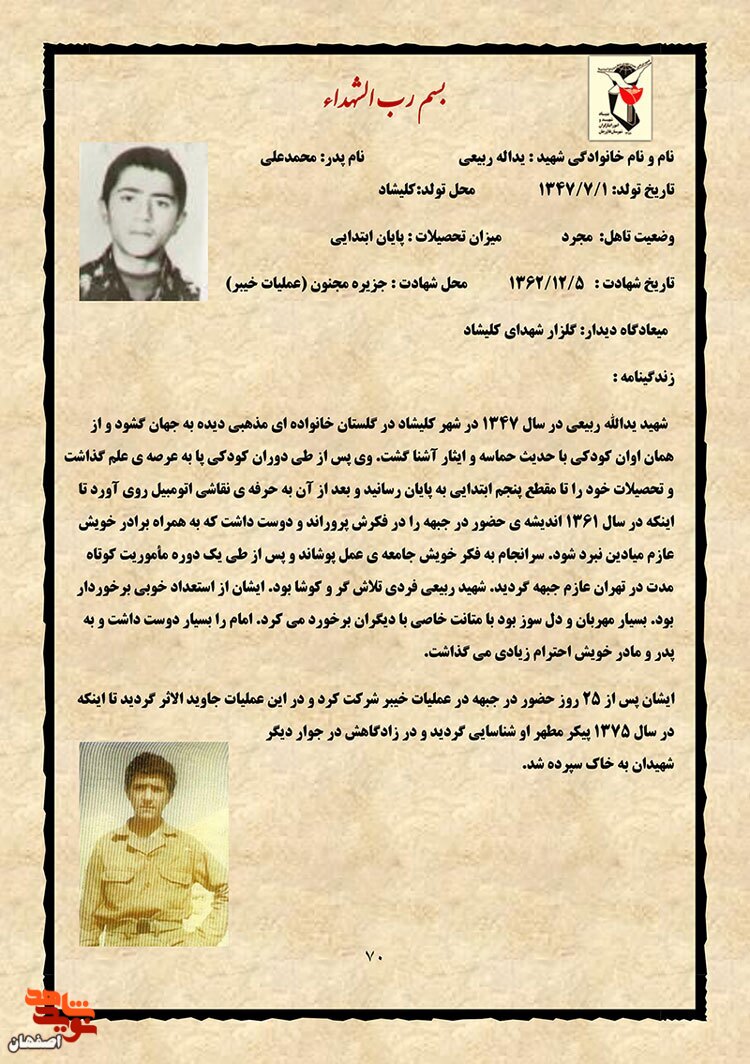 بسم رب الشهداء
نام و نام خانوادگی شهید : یداله ربیعی نام پدر: محمدعلی
تاریخ تولد: ۱۳۴۷/۷/۱ محل تولد:کلیشاد
وضعیت تاهل: مجرد میزان تحصیلات : پایان ابتدایی
تاریخ شهادت : ۱۳۶۲/۱۲/۵ محل شهادت : جزیره مجنون (عملیات خیبر)
میعادگاه دیدار: گلزار شهدای کلیشاد
زندگینامه :
شهید یدالله ربیعی در سال ۱۳۴۷ در شهر کلیشاد در گلستان خانواده ای مذهبی دیده به جهان گشود و از
همان اوان کودکی با حدیث حماسه و ایثار آشنا گشت. وی پس از طی دوران کودکی پا به عرصه ی علم گذاشت
و تحصیلات خود را تا مقطع پنجم ابتدایی به پایان رسانید و بعد از آن به حرفه ی نقاشی اتومبیل روی آورد تا
اینکه در سال ۱۳۶۱ اندیشه ی حضور در جبهه را در فکرش پروراند و دوست داشت که به همراه برادر خویش
عازم میادین نبرد شود. سرانجام به فکر خویش جامعه ی عمل پوشاند و پس از طی یک دوره مأموریت کوتاه
مدت در تهران عازم جبهه گردید. شهید ربیعی فردی تلاش گر و کوشا بود. ایشان از استعداد خوبی برخوردار
بود. بسیار مهربان و دل سوز بود با متانت خاصی با دیگران برخورد می کرد. امام را بسیار دوست داشت و به
پدر و مادر خویش احترام زیادی می گذاشت.
ایشان پس از ۲۵ روز حضور در جبهه در عملیات خیبر شرکت کرد و در این عملیات جاوید الاثر گردید تا اینکه
در سال ۱۳۷۵ پیکر مطهر او شناسایی گردید و در زادگاهش در جوار دیگر
شهیدان به خاک سپرده شد.
۷۰
نوید شاهد
اصفهان